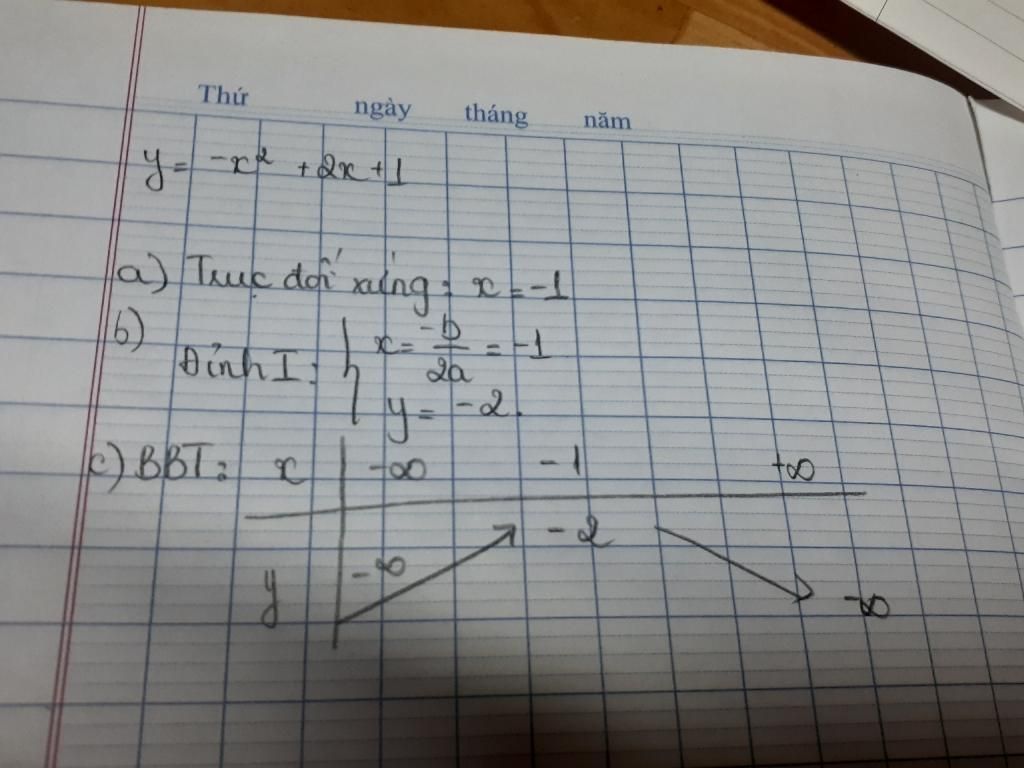 Thứ ngày tháng năm
y = -x² + 2x + 1
a) Trục đối xứng: x = -1
b) Đỉnh I: { x = -b/2a = -1
y = -2.
c) BBT: x | -∞ -1 +∞
y | -∞ ↗ -2 ↘ -∞